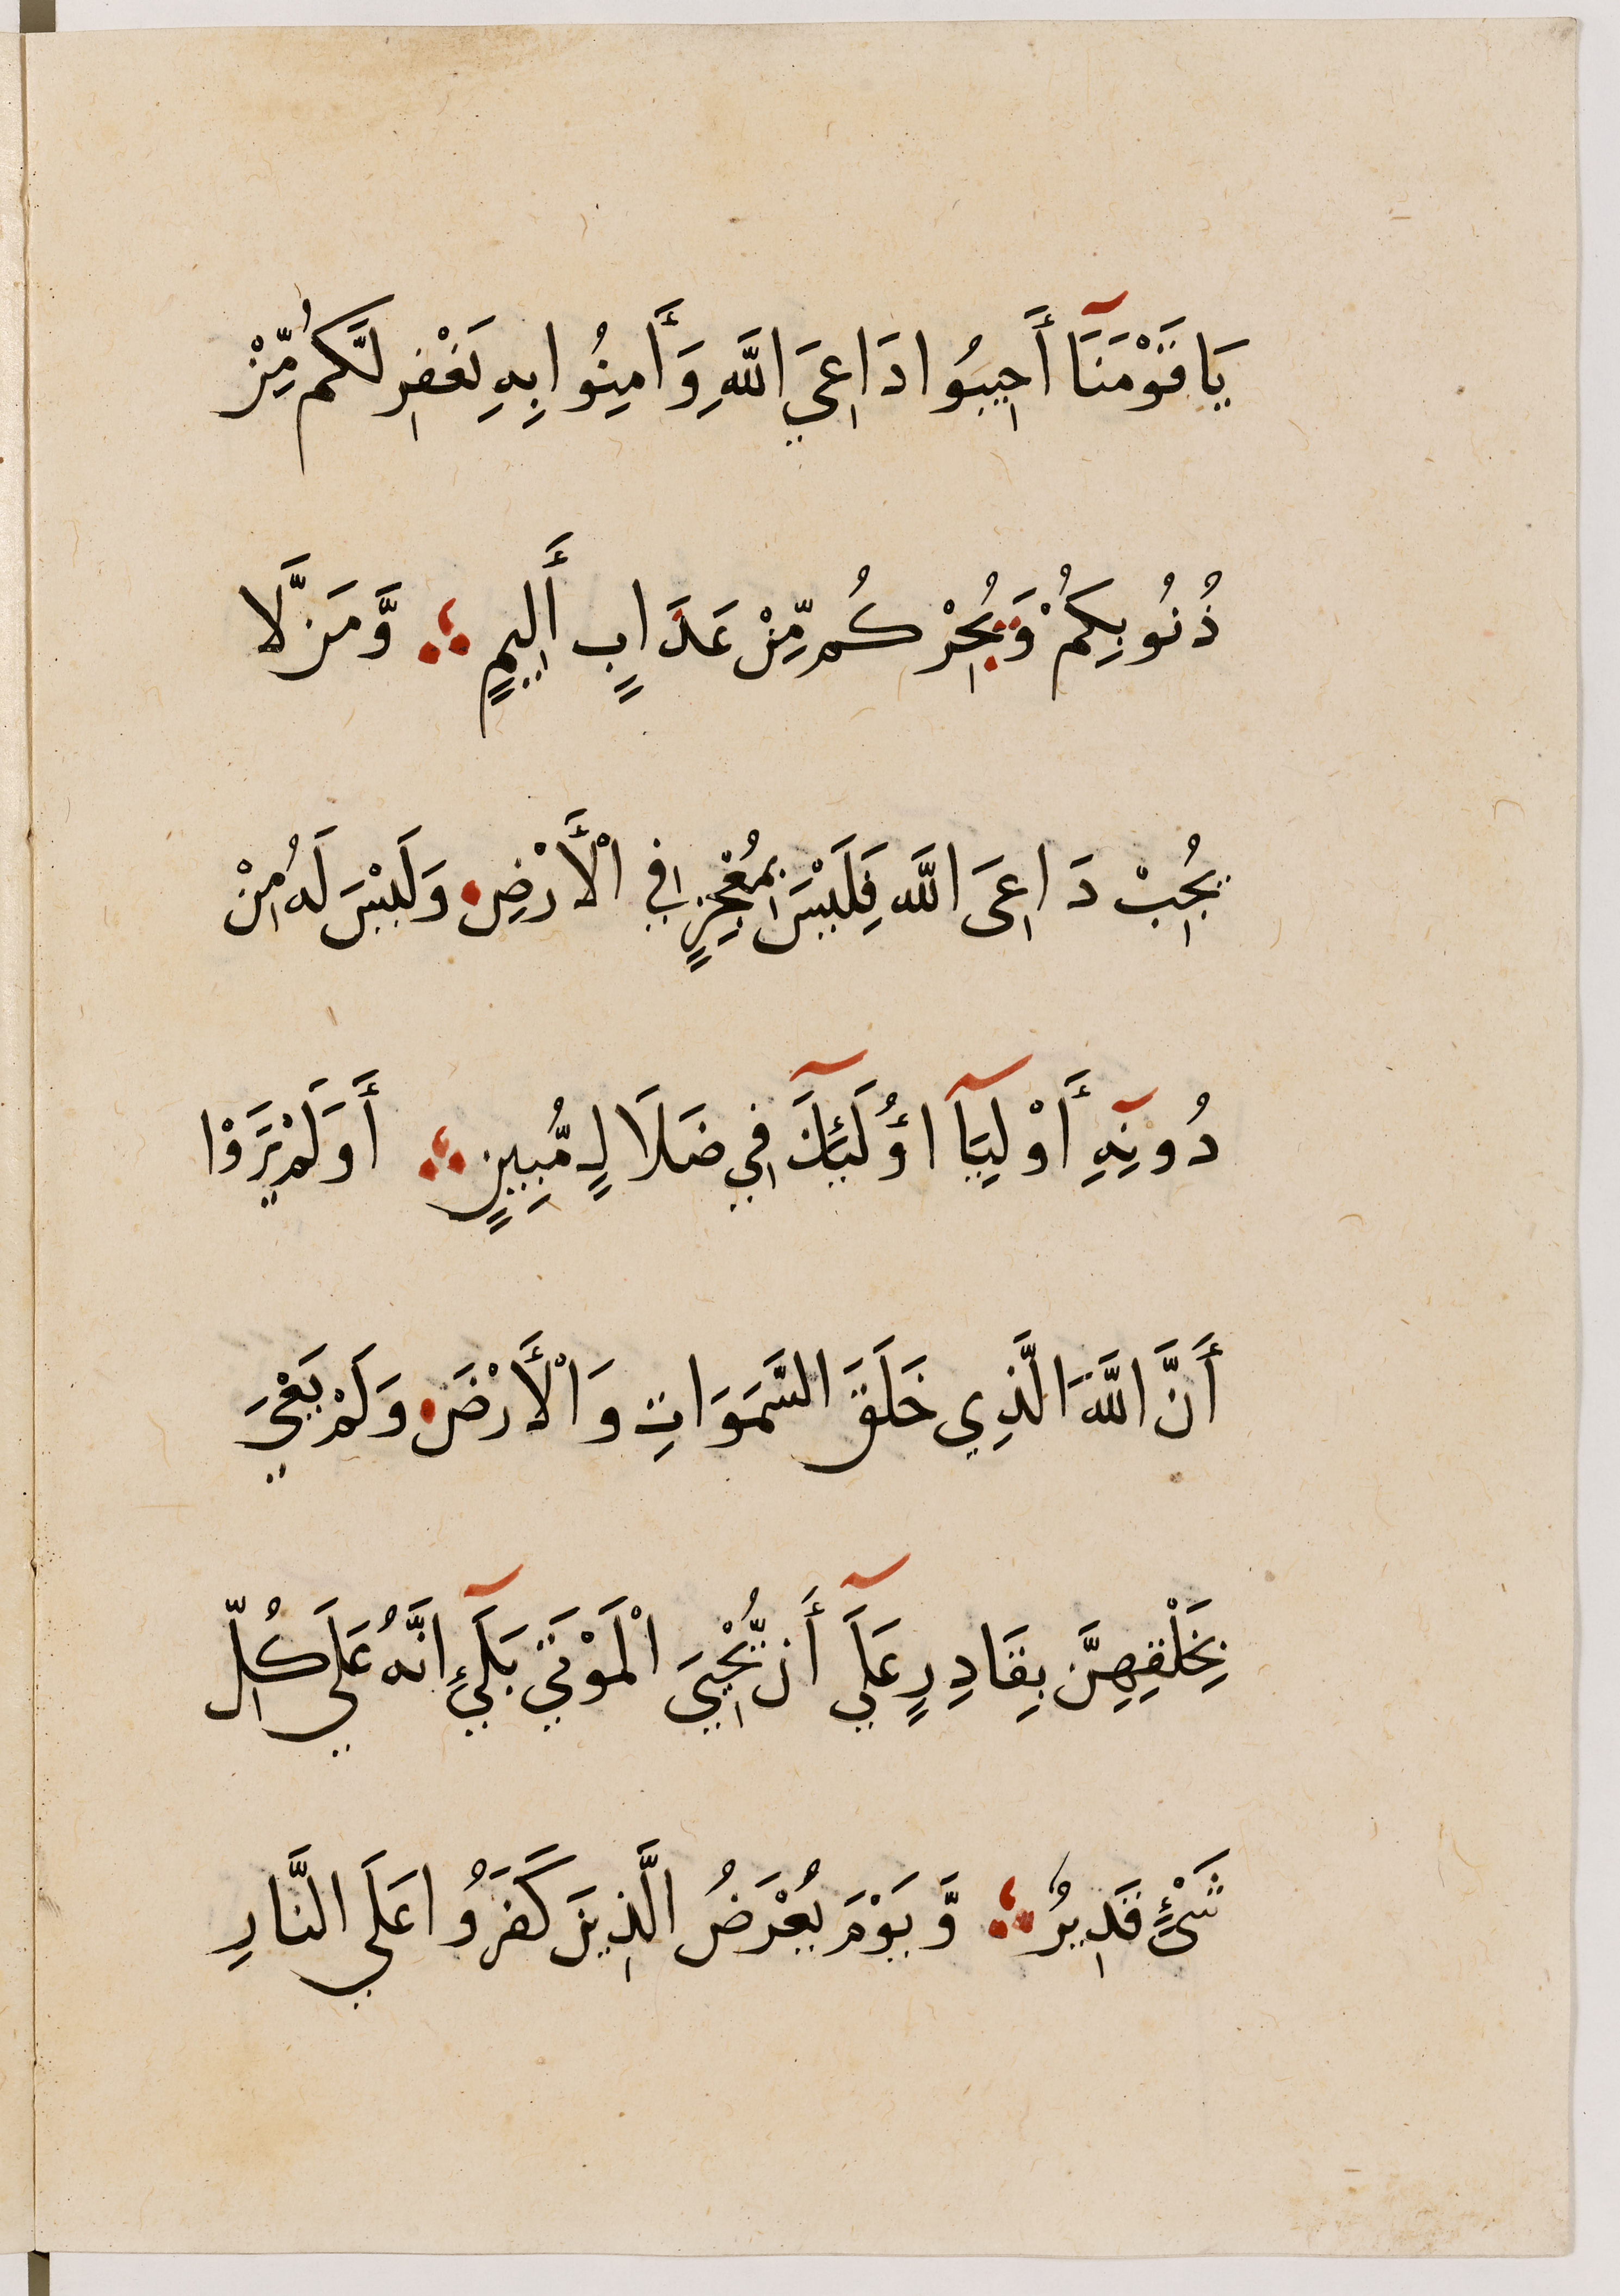 يَا قَوْمَنَآ أَجِيبُوا دَاعِيَ اللَّهِ وَأَامِنُوا بِهِ يَغْفِر لَّكُم مِّنْ
ذُنُوبِكُمْ وَيُجِرْكُم مِّنْ عَدَابٍ أَلِيمٍ ؞ وَّمَن لَّا
يُجِبْ دَاعِيَ اللَّه فَلَيْسَ بِمُعْجِزٍ فِي الْأَرْضِ وَلَيْسَ لَهُ مِنْ
دُونِهِٓ أَوْلِيَآ اؤُلَٓئِكَ فِي ضَلَالٍ مُّبِينٍ ؞ أَوَلَمْ يَرَوْا
أَنَّ اللَّهَ الَّذِي خَلَقَ السَّمَوَاتِ وَالْأَرْضَ وَلَمْ يَعْيَ
بِخَلْقِهِنَّ بِقَادِرٍ عَلَيٓ أَن يُّحْيِيَ الْمَوْتَي بَلَيٓ إِنَّهُ عَلَي كُلِّ
شَيْءٍ قَدِيرٌ ؞ وَّيَوْمَ يُعْرَضُ الَّذِينَ كَفَرُوا عَلَي النَّارِ